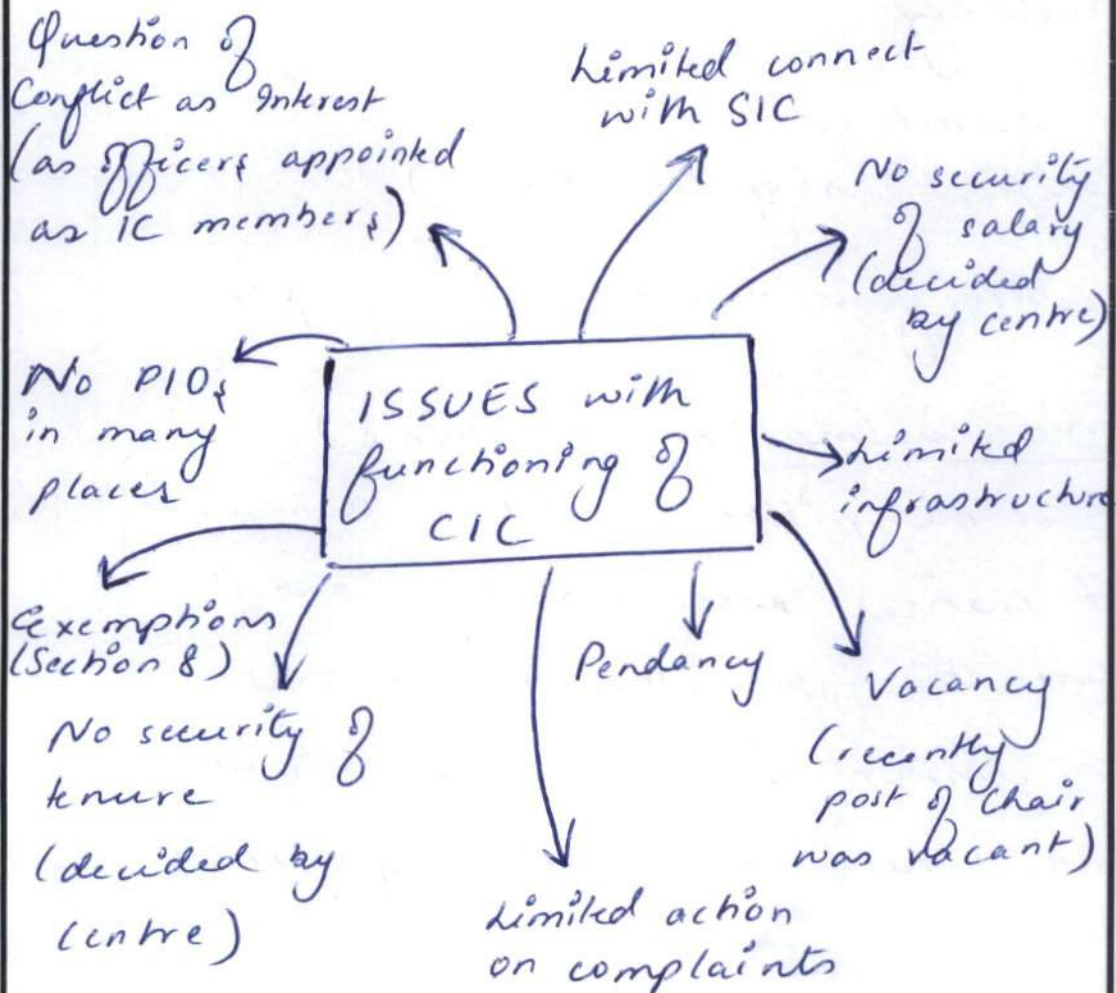 Question of
Conflict as Interest
(as officers appointed
as IC members)
Limited connect
with SIC
No security
of salary
(decided
by centre)
No PIOs
in many
places
ISSUES with
functioning of
CIC
Limited
infrastructure
Exemptions
(Section 8)
No security of
tenure
(decided by
centre)
Limited action
on complaints
Pendancy
Vacancy
(recently
post of Chair
was vacant)